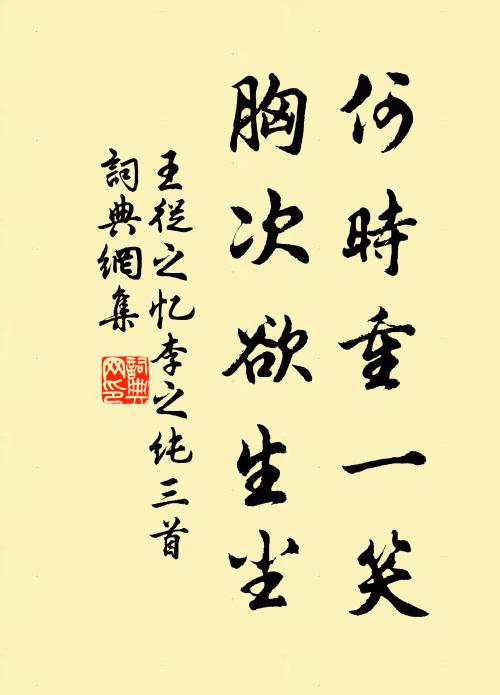 何時重一笑
胸次欲生尘
王從之忆李之纯三首
詞典網集
詞典網印